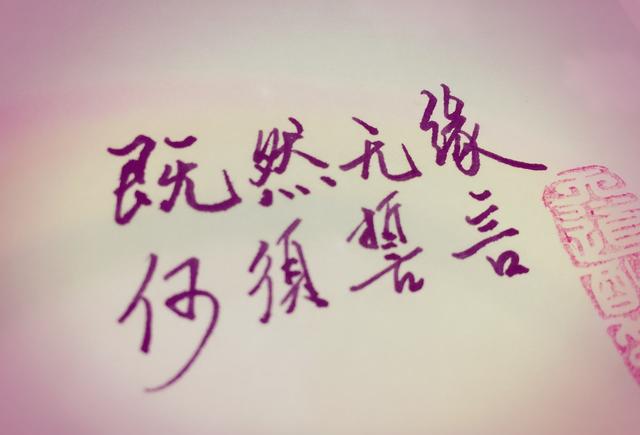 既然无缘
何須誓言